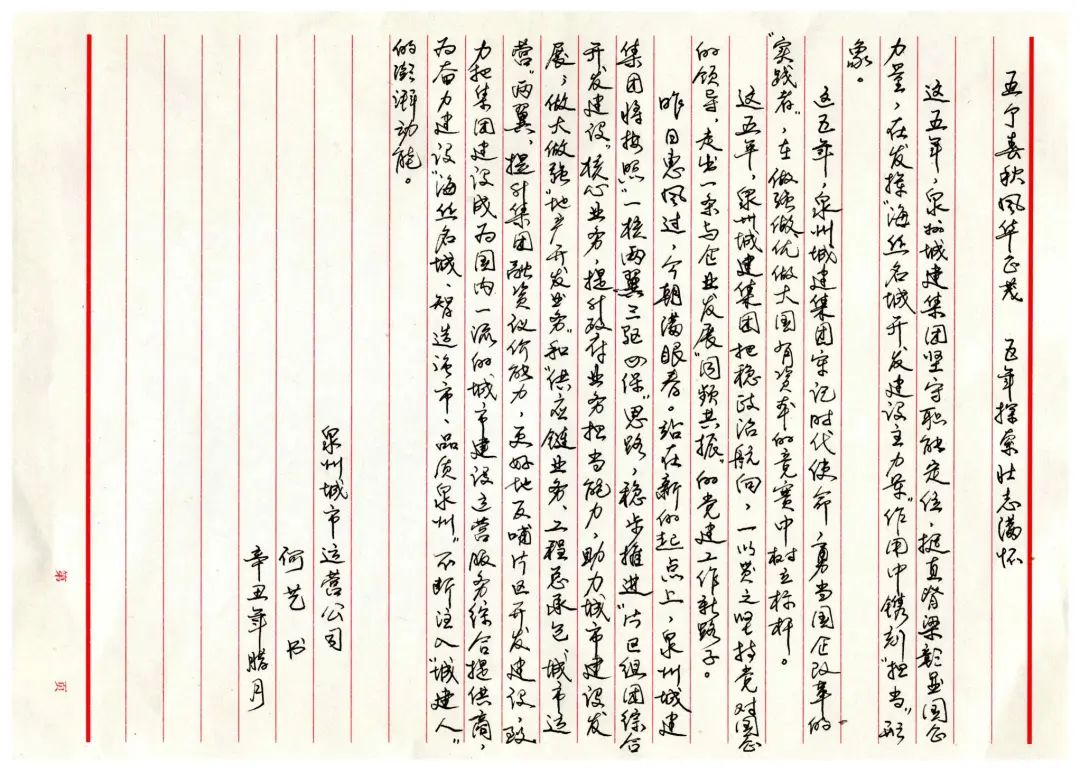 五个春秋风华正茂　五年探索壮志满怀
这五年，泉州城建集团坚守职能定位，挺直脊梁彰显国企
力量，在发挥“海丝名城开发建设主力军”作用中镌刻“担当”形
象。
这五年，泉州城建集团牢记时代使命，勇当国企改革的
“实践者”，在做强做优做大国有资本的竞赛中树立标杆。
这五年，泉州城建集团把稳政治航向，一以贯之坚持党对国企
的领导，走出一条与企业发展“同频共振”的党建工作新路子。
昨日惠风过，今朝满眼春。站在新的起点上，泉州城建
集团将按照“一核两翼三驱四保”思路，稳步推进“片区组团综合
开发建设”核心业务，提升政府业务担当能力，助力城市建设发
展；做大做强“地产开发业务”和“供应链业务、工程总承包、城市运
营”两翼，提升集团融资议价能力，更好地反哺片区开发建设，致
力把集团建设成为国内一流的城市建设运营服务综合提供商，
为奋力建设“海丝名城、智造强市、品质泉州”不断注入“城建人”
的澎湃动能。
泉州城市运营公司
何艺 书
辛丑年腊月
第　页